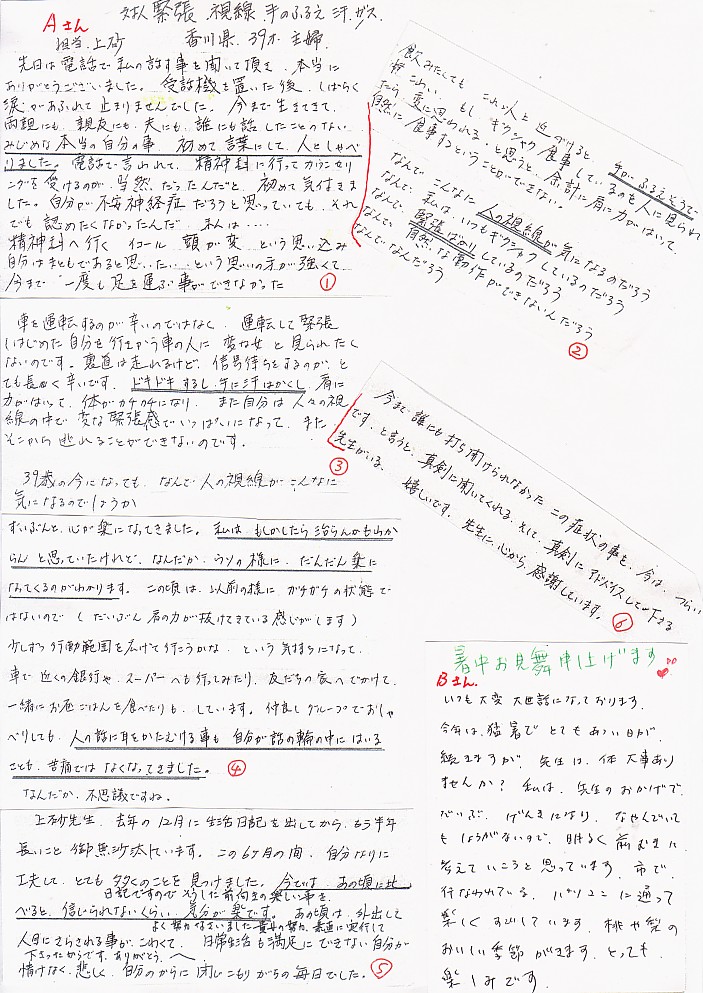 Aさん 対人緊張 視線 手のふるえ 汗 ガス
担当 上砂 香川県 39才 主婦
先日は電話で私の話す事を聞いて頂き、本当に
ありがとうございました。受話機を置いた後、しばらく
涙があふれて止まりませんでした。今まで生きてきて、
両親にも、親友にも、夫にも、誰にも話したことのない
みじめな本当の自分の事、初めて言葉にして、人としゃべ
りました。電話で言われて、精神科に行ってカウンセリ
ングを受けるのが、当然だったんだと、初めて気付きま
した。自分が不安神経症だろうと思っていても、それ
でも認めたくなかったんだ、私は‥‥
精神科へ行く イコール 頭が変 という思い込み
自分はまともであると思いたい‥という思いの方が強くて
今まで一度も足を運ぶ事ができなかった
①
飲みたしても これが人と近づけると、手がふるえそうで
こわい。もし ギクシャク食事しているのも人に見られ
たら変に思われる、と思うと、余計に肩に力がはいって、
自然に食事するということができない。
なんでこんなに人の視線が気になるのだろう
なんで、私は、いつもギクシャクしているのだろう
なんで、緊張ばかりしているのだろう
なんで、自然な動作ができないんだろう
なんで、なんだろう
②
車を運転するのが辛いのではなく、運転して緊張
しはじめた自分を行きかう車の人に変な女と見られたく
ないのです。裏道は走れるけど、信号待ちをするのが、と
ても長かく辛いです。ドキドキするし、手に汗はかくし、肩に
力がはいって、体がカチカチになり、また自分は人々の視
線の中で変な緊張感でいっぱいになって、また、
そこから逃れることができないのです。
③
39歳の今になっても、なんで人の視線がこんなに
気になるのでしょうか
今まで誰にも打ち開けられなかったこの症状の事を、今は、つらい
です、と言うと、真剣に聞いてくれる、そして、真剣にアドバイスして下さる
先生がいる。
嬉しいです。先生に、心から、感謝しています。
⑥
ずいぶんと、心が楽になってきました。私は もしかしたら治らんかもわか
らんと思っていたけれど、なんだか、ウソの様に、だんだん楽に
なってくるのがわかります。この頃は、以前の様にガチガチの状態で
はないので(だいぶん肩の力が抜けてきている感じがします)
少しずつ行動範囲を広げて行こうかな、という気持ちになって、
車で近くの銀行や、スーパーへも行ってみたり、友だちの家へでかけて、
一緒にお昼ごはんを食べたりも、しています。仲良しグループでおしゃ
べりしても、人の話に耳をかたむける事も自分が話の輪の中にはいる
ことも、苦痛ではなくなってきました。
④
なんだか、不思議ですね。
上砂先生、去年の12月に生活日記を出してから、もう半年
長いこと御無沙汰しています。この6ヶ月の間、自分なりに
工夫して、とても多くのことを見つけました。今では、あの頃に比
日記ですので そうした前向きの楽しい事を、
べると、信じられないくらい、気分が楽です。あの頃は、外出して
よく努力なさいました 貴女の努力、素直に実行して
人目にさらされる事が、こわくて、日常生活も満足にできない自分が
下さったからです、ありがとう。へ
情けなく、悲しく、自分のからに閉じこもりがちの毎日でした。
⑤
暑中お見舞申上げます
Bさん
いつも大変大世話になっております。
今年は、猛暑でとてもあつい日が、
続きますが、先生は、体 大事あり
ませんか？ 私は、先生のおかげで、
だいぶ、げんきになり、なやんでいて
もしょうがないので、明るく前むきに
考えていこうと思っています。市で、
行なわれている、パソコンに通って
楽しくすごしています。桃や梨の
おいしい季節がきます。とっても
楽しみです。